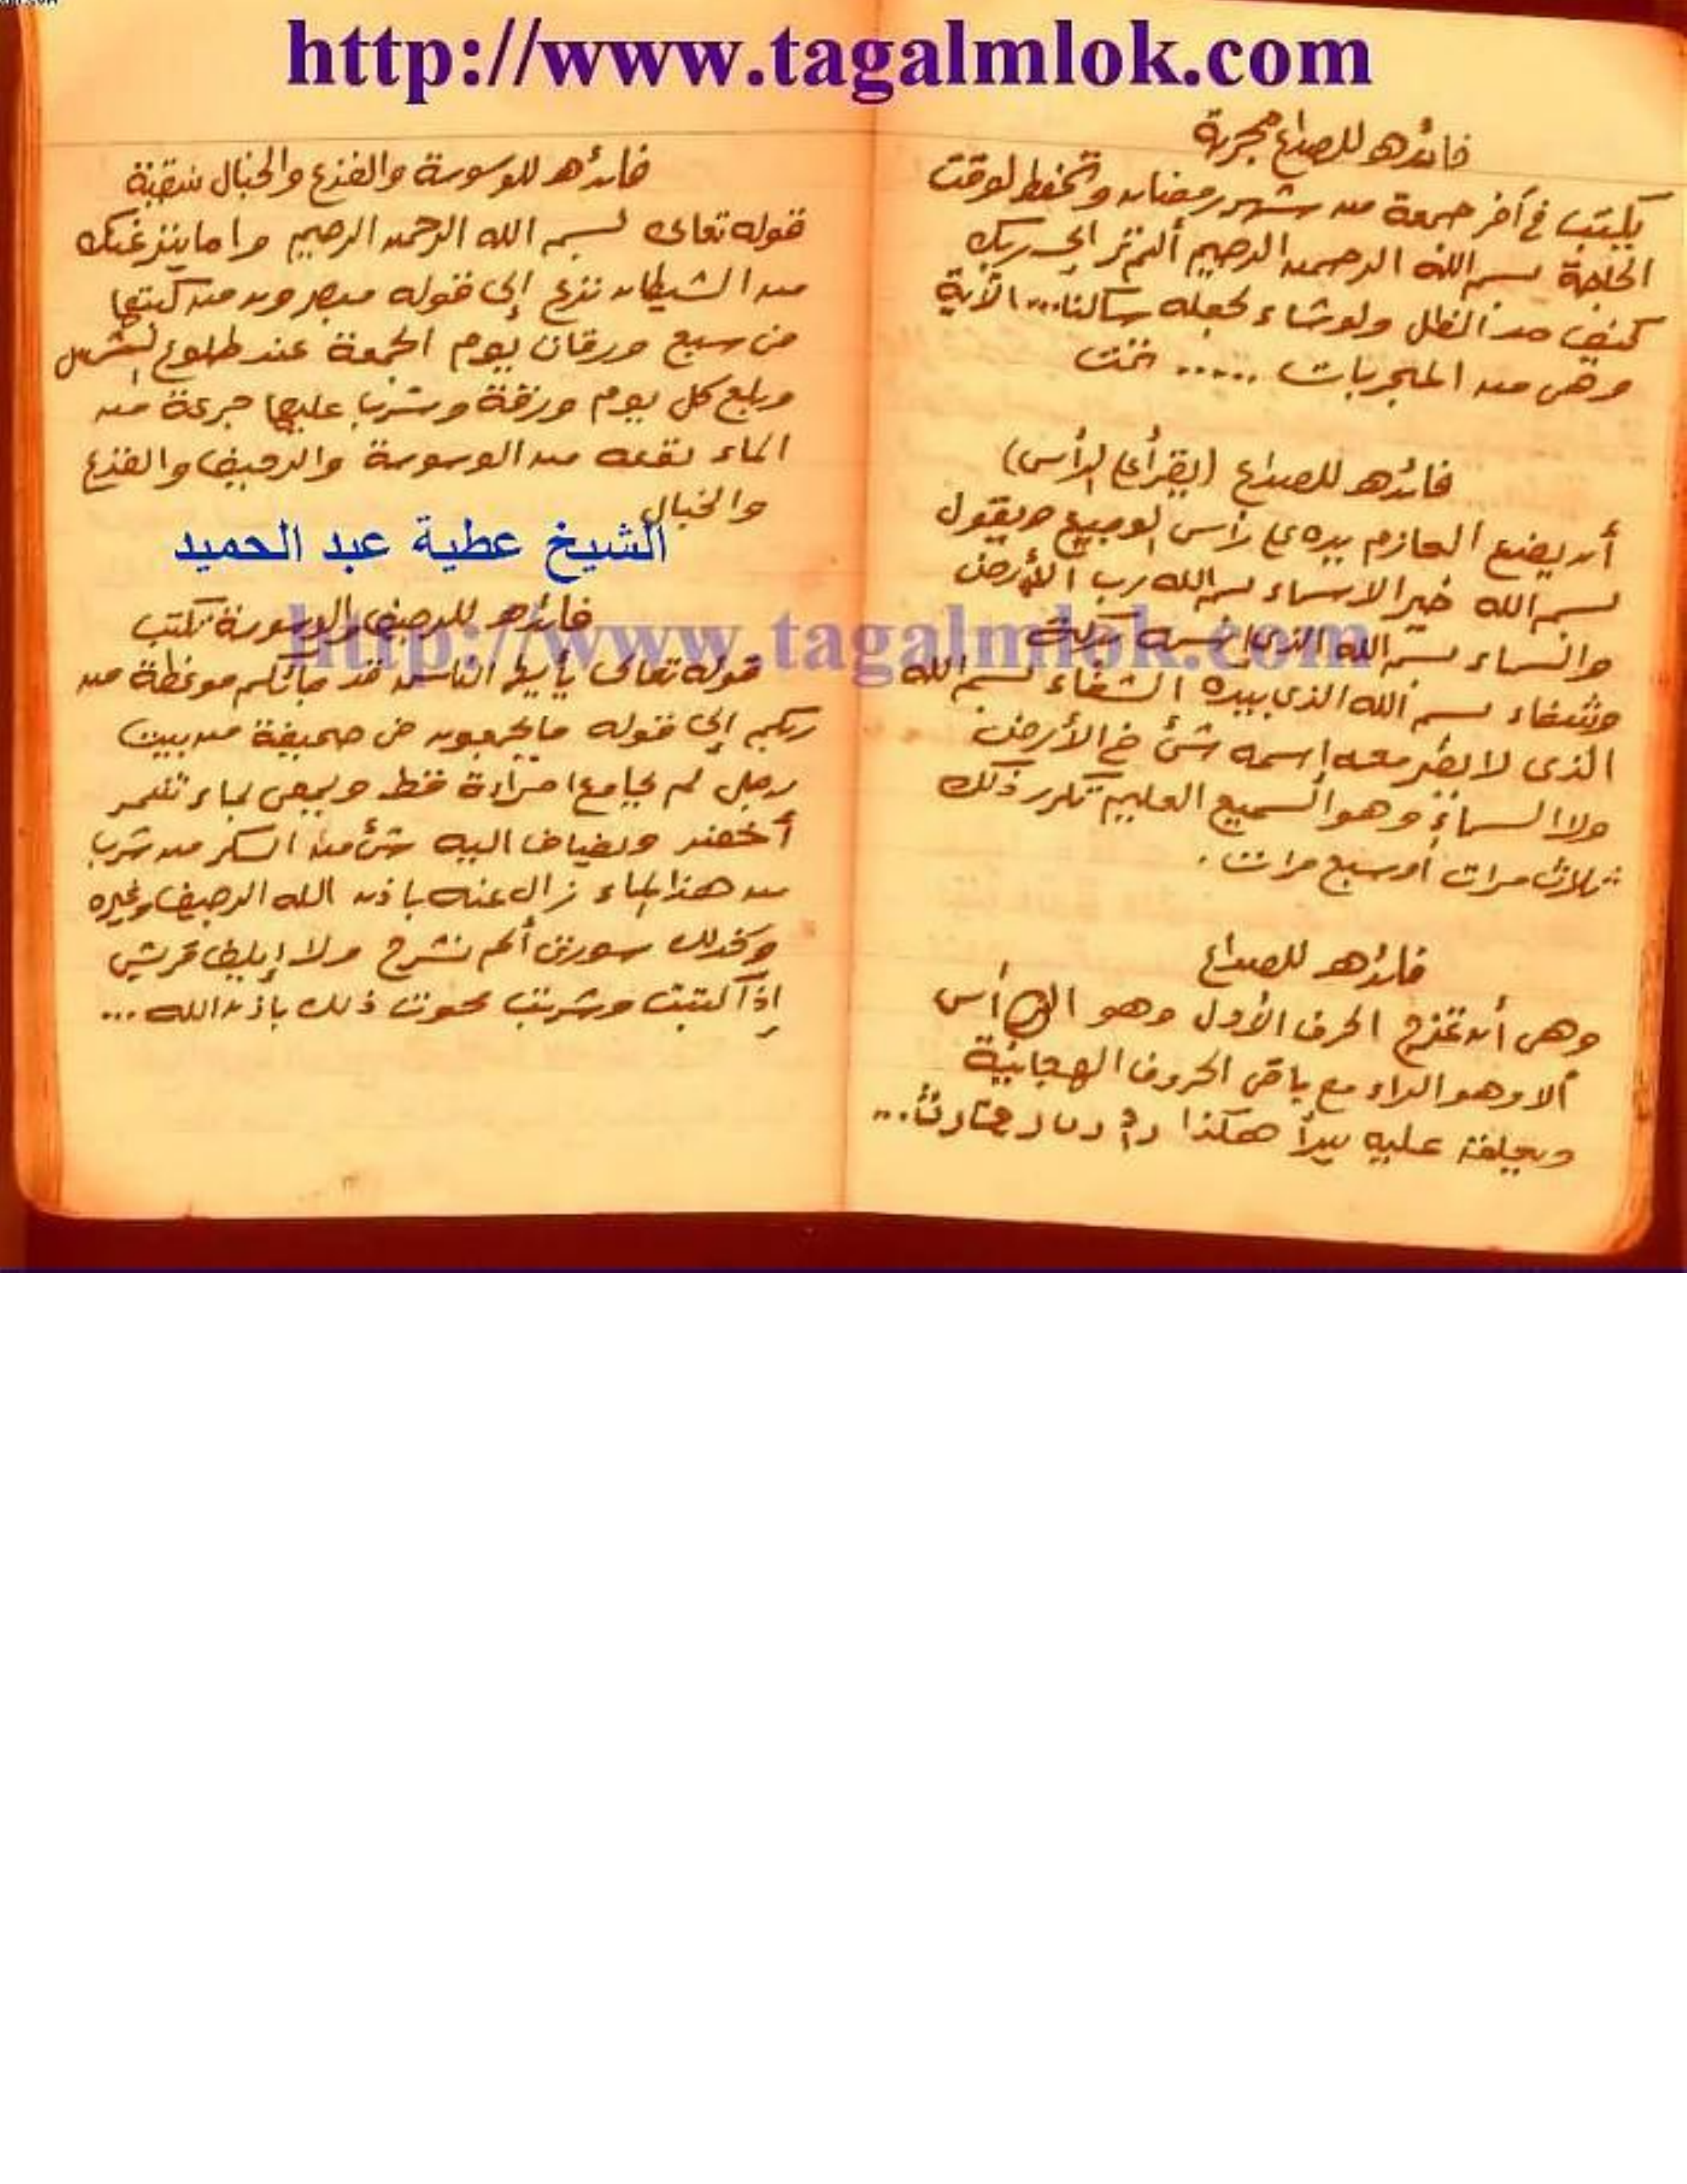 http://www.tagalmlok.com
فائده للصداع مجربة
يكتب في آخر جمعة من شهر رمضان وتحفظ لوقت
الحاجة بسم الله الرحمن الرحيم ألم تر إلى ربك
كيف مد الظل ولو شاء لجعله ساكنا... الآية
وهى من المجربات ..... تمت
فائده للصداع (يقرأ على الرأس)
أن يضع العازم يده على رأس الوجيع ويقول
بسم الله خير الاسماء بسم الله رب الأرض
والسماء بسم الله الذى اسمه بركة
وشفاء بسم الله الذى بيده الشفاء بسم الله
الذى لا يضر معه إسمه شئ في الأرض
ولا السماء وهو السميع العليم تكرر ذلك
ثلاث مرات أو سبع مرات .
فائده للصداع
وهى أن تمزج الحرف الأول وهو الرأس
ألا وهو الراء مع باقى الحروف الهجائية
عليه يبدأ هكذا
فائده للوسوسة والفزع والخبال
قوله تعالى بسم الله الرحمن الرحيم وإما ينزغنك
من الشيطان نزغ إلى قوله مبصرون من كتبها
فى سبع ورقات يوم الجمعة عند طلوع الشمس
وبلع كل يوم ورقة وشرب عليها جرعة من
الماء نفعه من الوسوسة والرجيف والفزع
والخبال
الشيخ عطية عبد الحميد
فائده للرجيف والوسوسة تكتب
http://www.tagalmlok.com
قوله تعالى يأيها الناس قد جائكم موعظة من
ربكم إلى قوله مايجمعون فى صحيفة من بيت
رجل لم يجامع امرأة قط ويمحى بماء
أخضر ويضاف اليه شئ من السكر من شرب
من هذا الماء زال عنه باذن الله الرجيف وغيره
وكذلك سورتى ألم نشرح ولإيلاف قريش
إذا كتبت وشربت محوت ذلك باذن الله ...